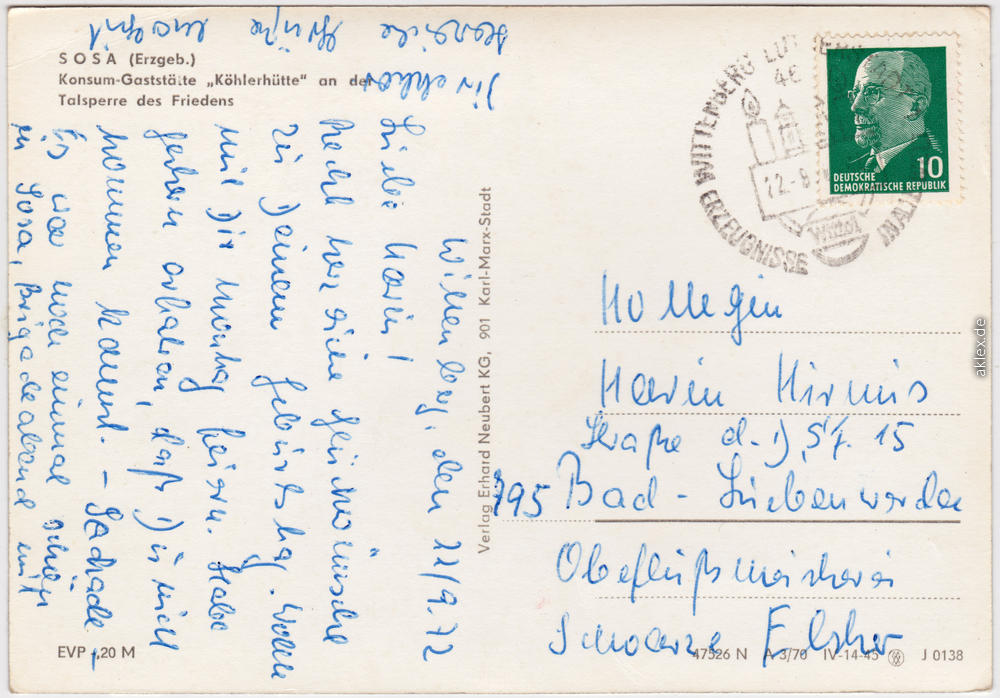 SOSA (Erzgeb.)
Konsum-Gaststätte „Köhlerhütte" an der
Talsperre des Friedens
Wittenberg, den 11/9.72
Liebe Karin!
Recht herzliche Glückwünsche
zu Deinem Geburtstag. Wollte
mit Dir Montag feiern. Habe
gestern erfahren, daß Du nicht
kommen kannst. – Schade –
Es war noch einmal schön
in Sosa, Brigadeabend mit
Direktor
Herzliche Grüße
Verlag Erhard Neubert KG, 901 Karl-Marx-Stadt
WITTENBERG LUTHER
46
12.-9
ERZEUGNISSE
IN ALLE
Wittol
10
DEUTSCHE
DEMOKRATISCHE REPUBLIK
Kollegin
Karin Hirnis
Straße d. DSF. 15
795 Bad-Liebenwerda
Obeflußmeisterei
Schwarze Elster
EVP -,20 M
47526 N A 3/70 IV-14-45 J 0138
aklex.de